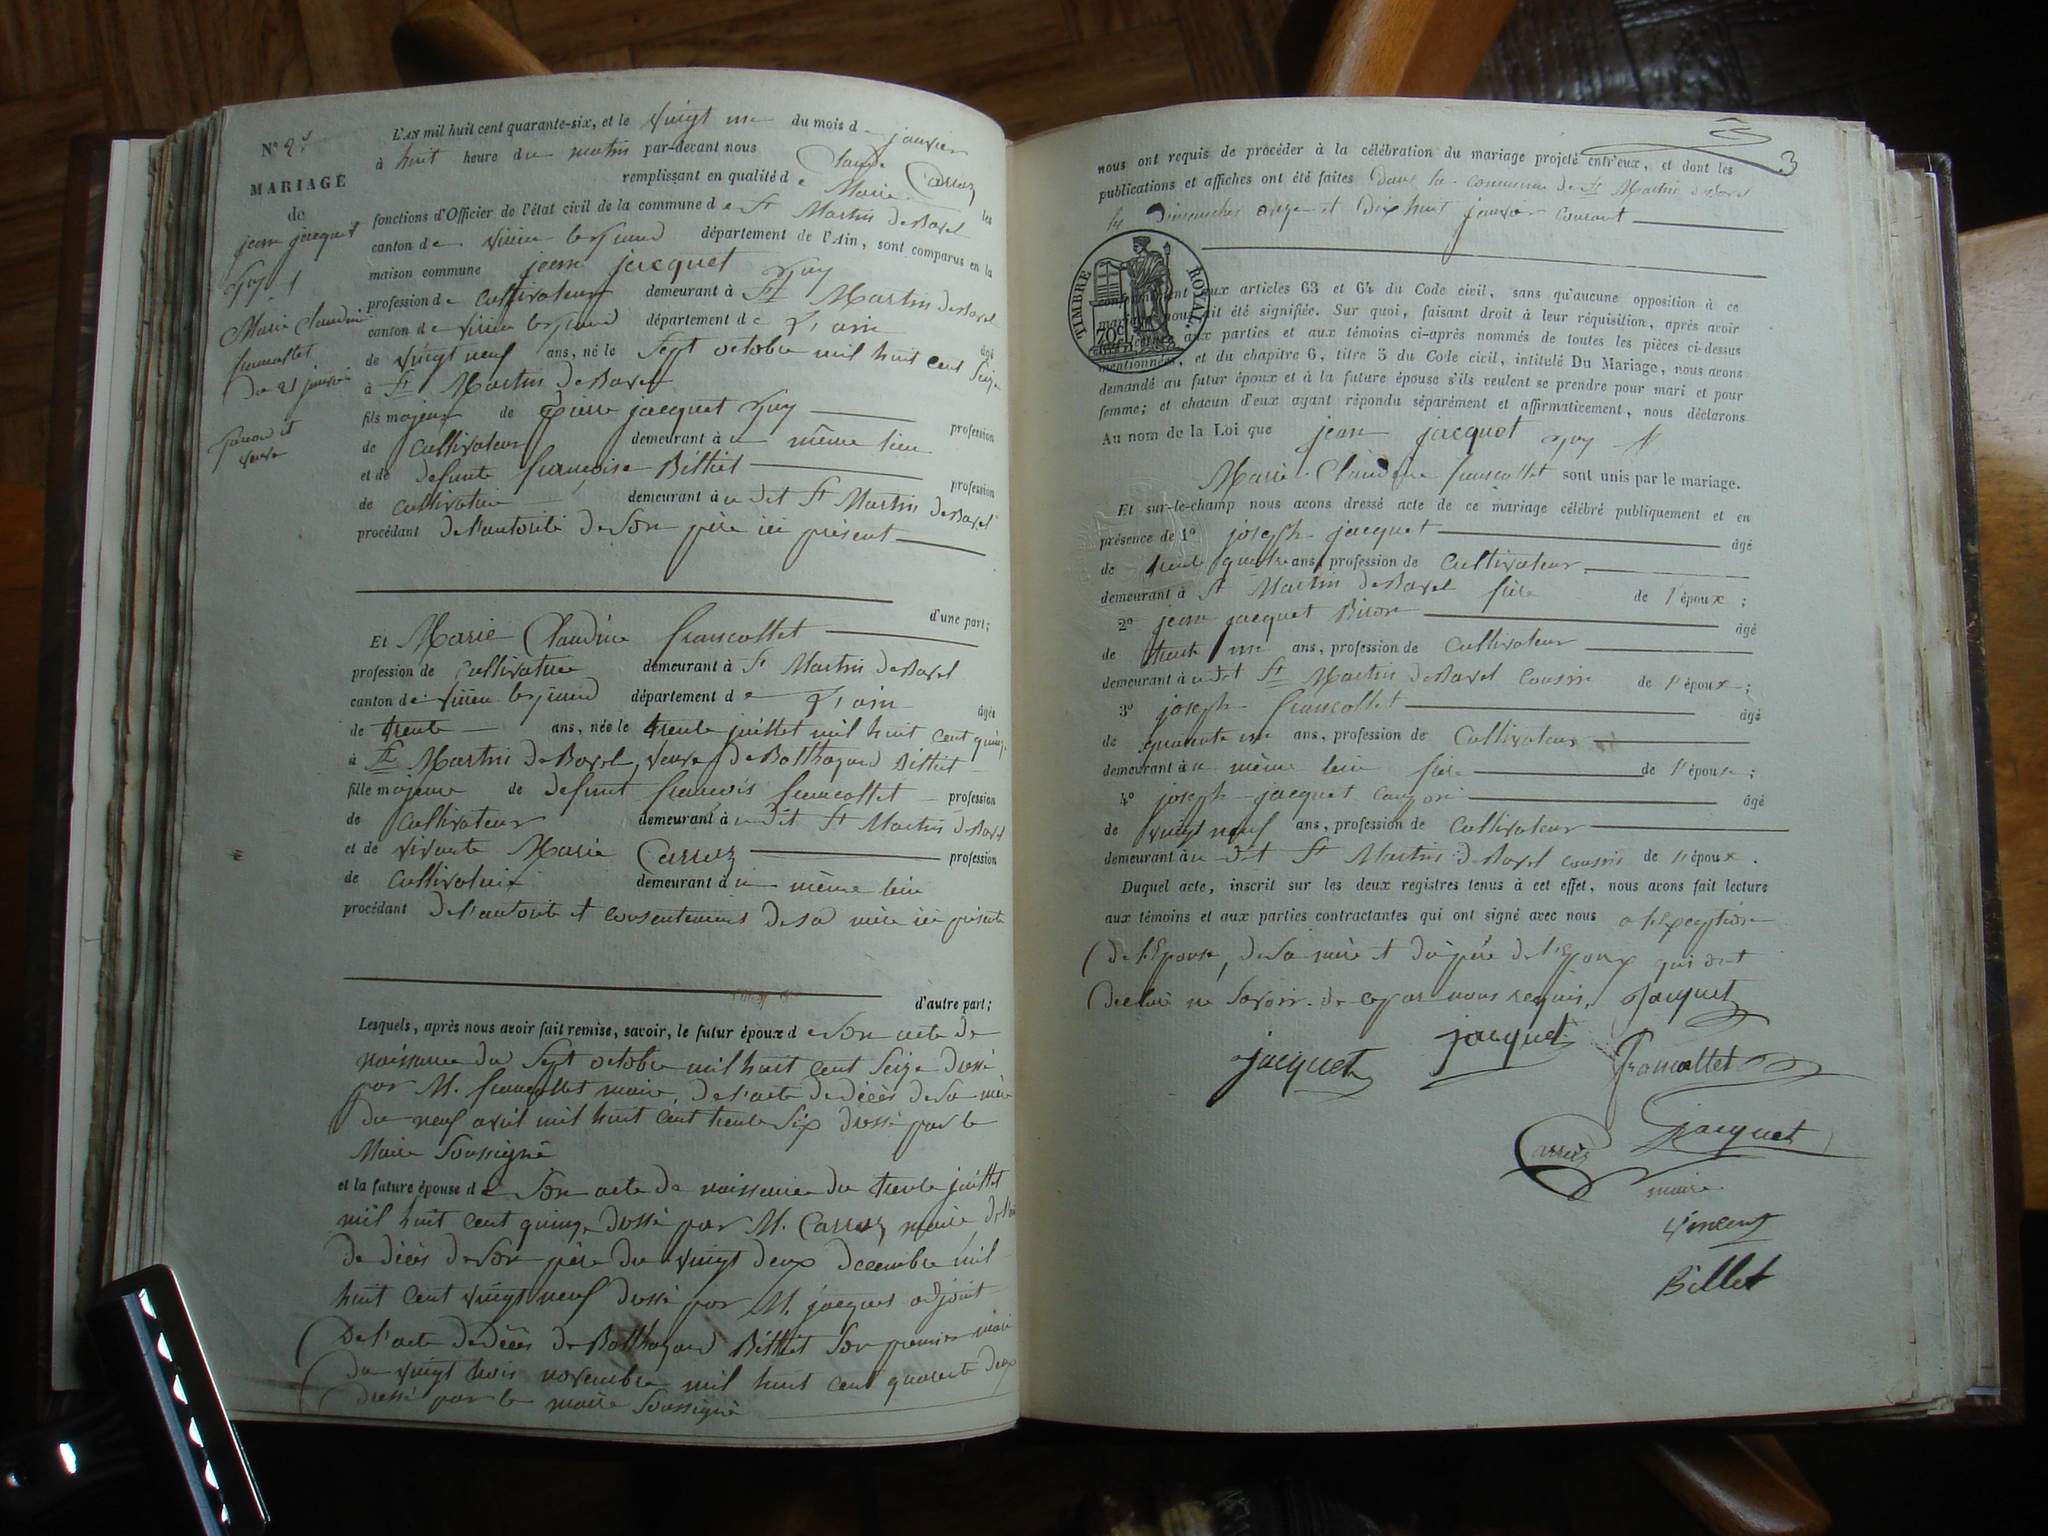 N° 2
MARIAGE
de
jean jacquet
guy et
Marie Claudine
francollet
du 21 janvier
L'AN mil huit cent quarante-six, et le vingt un du mois de janvier
à huit heure du matin par-devant nous Claude
Marie Carrus
remplissant en qualité de les
fonctions d'Officier de l'état civil de la commune de St Martin de Bavel
canton de virieu le grand département de l'Ain, sont comparus en la
maison commune jean jacquet guy
profession de cultivateur demeurant à St Martin de Bavel
canton de virieu le grand département de l'ain âgé
de vingt neuf ans, né le sept octobre mil huit cent seize
à St Martin de Bavel
fils majeur de pierre jacquet guy profession
de cultivateur demeurant à u même lieu
et de defunte françoise Billiet profession
de cultivatrice demeurant à u dit St Martin de Bavel
procédant de l'autorité de son père ici présent
d'une part;
Et Marie Claudine francollet
profession de cultivatrice demeurant à St Martin de Bavel
canton de virieu le grand département de l'ain âgée
de trente ans, née le trente juillet mil huit cent quinze
à St Martin de Bavel, veuve de Balthazard Billiet
fille majeure de defunt françois francollet profession
de cultivateur demeurant à u dit St Martin de Bavel
et de vivante Marie Carrus profession
de cultivatrice demeurant à u même lieu
procédant de l'autorité et consentement de sa mère ici présente
d'autre part;
Lesquels, après nous avoir fait remise, savoir, le futur époux de son acte de
naissance du sept octobre mil huit cent seize dressé
par M. francollet maire, de l'acte de décès de sa mère
du neuf avril mil huit cent trente six dressé par le
Maire soussigné
et la future épouse de son acte de naissance du trente juillet
mil huit cent quinze dressé par M. Carrus, maire
de décès de son père du vingt deux decembre mil
huit cent vingt neuf dressé par M. jacquet adjoint
de l'acte de décès de Balthazard Billiet son premier mari
du vingt trois novembre mil huit cent quarante deux
dressé par le maire soussigné
3
nous ont requis de procéder à la célébration du mariage projeté entr'eux, et dont les
publications et affiches ont été faites dans la commune de St Martin de Bavel
les dimanches onze et dix huit janvier courant
TIMBRE ROYAL.
70c
conformément aux articles 63 et 64 du Code civil, sans qu'aucune opposition à ce
mariage nous ait été signifiée. Sur quoi, faisant droit à leur réquisition, après avoir
aux parties et aux témoins ci-après nommés de toutes les pièces ci-dessus
mentionnées, et du chapitre 6, titre 5 du Code civil, intitulé Du Mariage, nous avons
demandé au futur époux et à la future épouse s'ils veulent se prendre pour mari et pour
femme; et chacun d'eux ayant répondu séparément et affirmativement, nous déclarons
Au nom de la Loi que jean jacquet guy et
Marie Claudine francollet sont unis par le mariage.
Et sur-le-champ nous avons dressé acte de ce mariage célébré publiquement et en
présence de 1° joseph jacquet âgé
de trente quatre ans, profession de cultivateur
demeurant à St Martin de Bavel frère de l'époux;
2° jean jacquet Biron âgé
de trente un ans, profession de cultivateur
demeurant à u dit St Martin de Bavel cousin de l'époux;
3° joseph francollet âgé
de quarante un ans, profession de cultivateur
demeurant à u même lieu frère de l'épouse;
4° joseph jacquet âgé
de vingt neuf ans, profession de cultivateur
demeurant à u dit St Martin de Bavel cousin de l'époux.
Duquel acte, inscrit sur les deux registres tenus à cet effet, nous avons fait lecture
aux témoins et aux parties contractantes qui ont signé avec nous a l'exception
de l'Epouse, de sa mère et du père de l'Epoux qui ont
declaré ne savoir de ce par nous requis. Jacquet
jacquet jacquet francollet
jacquet
Carrus
maire
Vincent
Billet